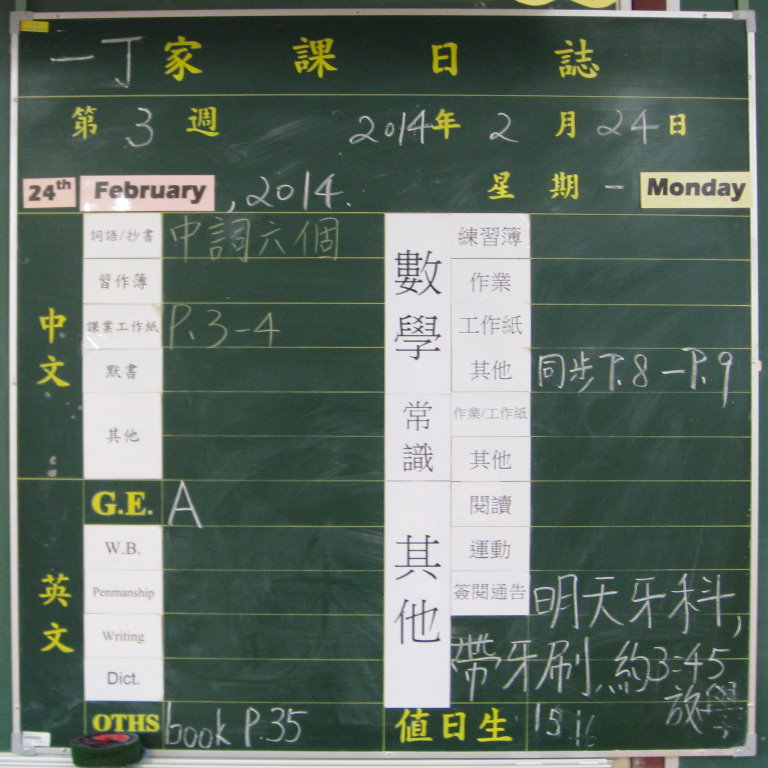 一丁家課日誌
第3週 2014年2月24日
24th February, 2014. 星期一 Monday
中文
詞語/抄書 中詞六個
習作簿
課業工作紙 P.3-4
默書
其他
英文
G.E. A
W.B.
Penmanship
Writing
Dict.
OTHS book P.35
數學
練習簿
作業
工作紙
其他 同步P.8-P.9
常識
作業/工作紙
其他
其他
閱讀
運動
簽閱通告 明天牙科,
帶牙刷,約3:45
放學
值日生 15.16